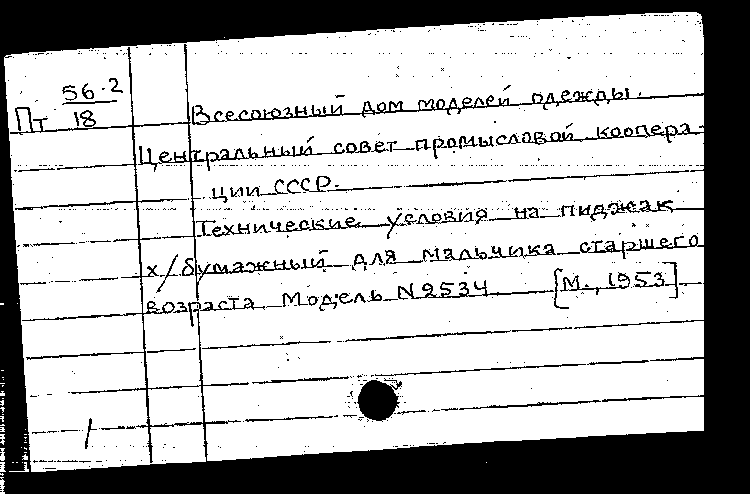 Пт 56-2/18
Всесоюзный дом моделей одежды.
Центральный совет промысловой коопера-
ции СССР.
Технические условия на пиджак
х/бумажный для мальчика старшего
возраста. Модель N2534 [М., 1953].
/